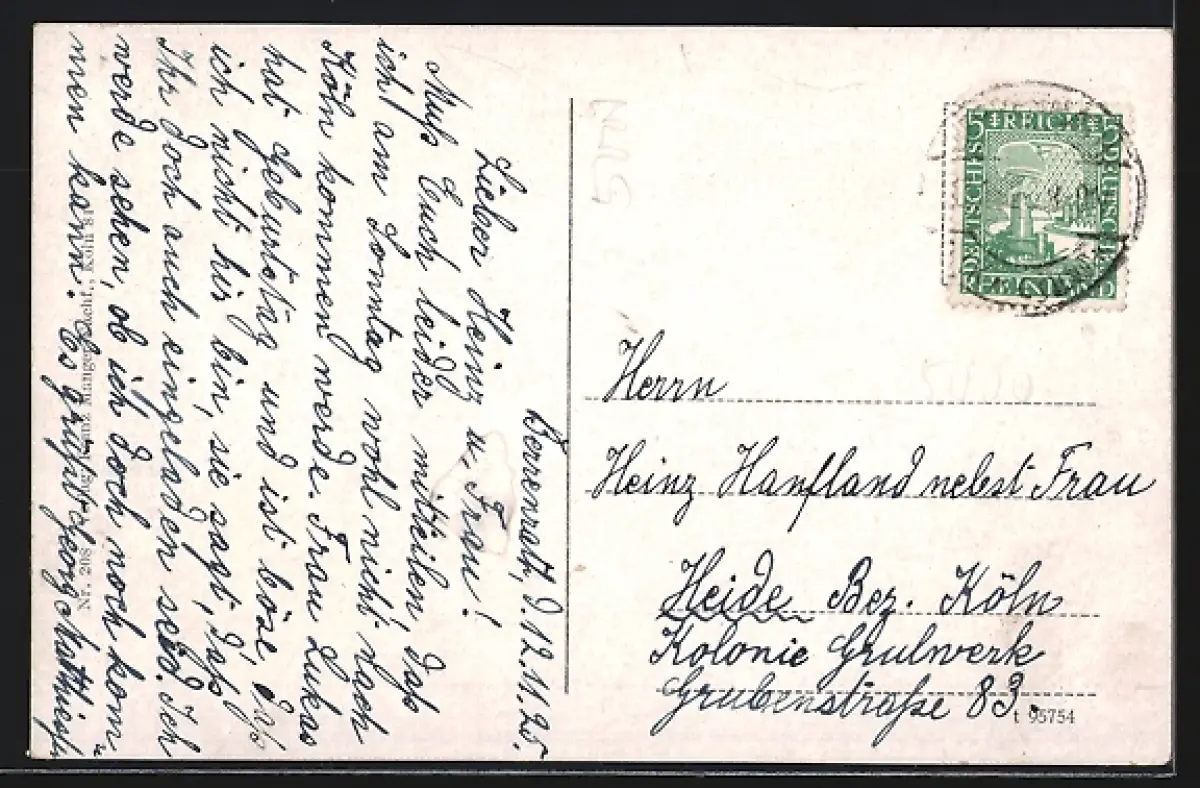 Berrenrath, d. 12.11.25.
Lieber Heinz u. Frau!
Muß Euch leider mitteilen, daß
ich am Sonntag wohl nicht nach
Köln kommen werde. Frau Lukas
hat Geburtstag und ist böse, daß
ich nicht hir bin, sie sagt, daß
Ihr doch auch eingeladen seid. Ich
werde sehen, ob ich doch noch kom-
men kann. Es grüßt
Nr. 208
Köln
DEUTSCHES REICH
5 5
DEUTSCHES
RHEINLAND
Herrn
Heinz Hanfland nebst Frau
Heide Bez. Köln
Kolonie Grulwerk
Grubenstraße 83.
t 95754